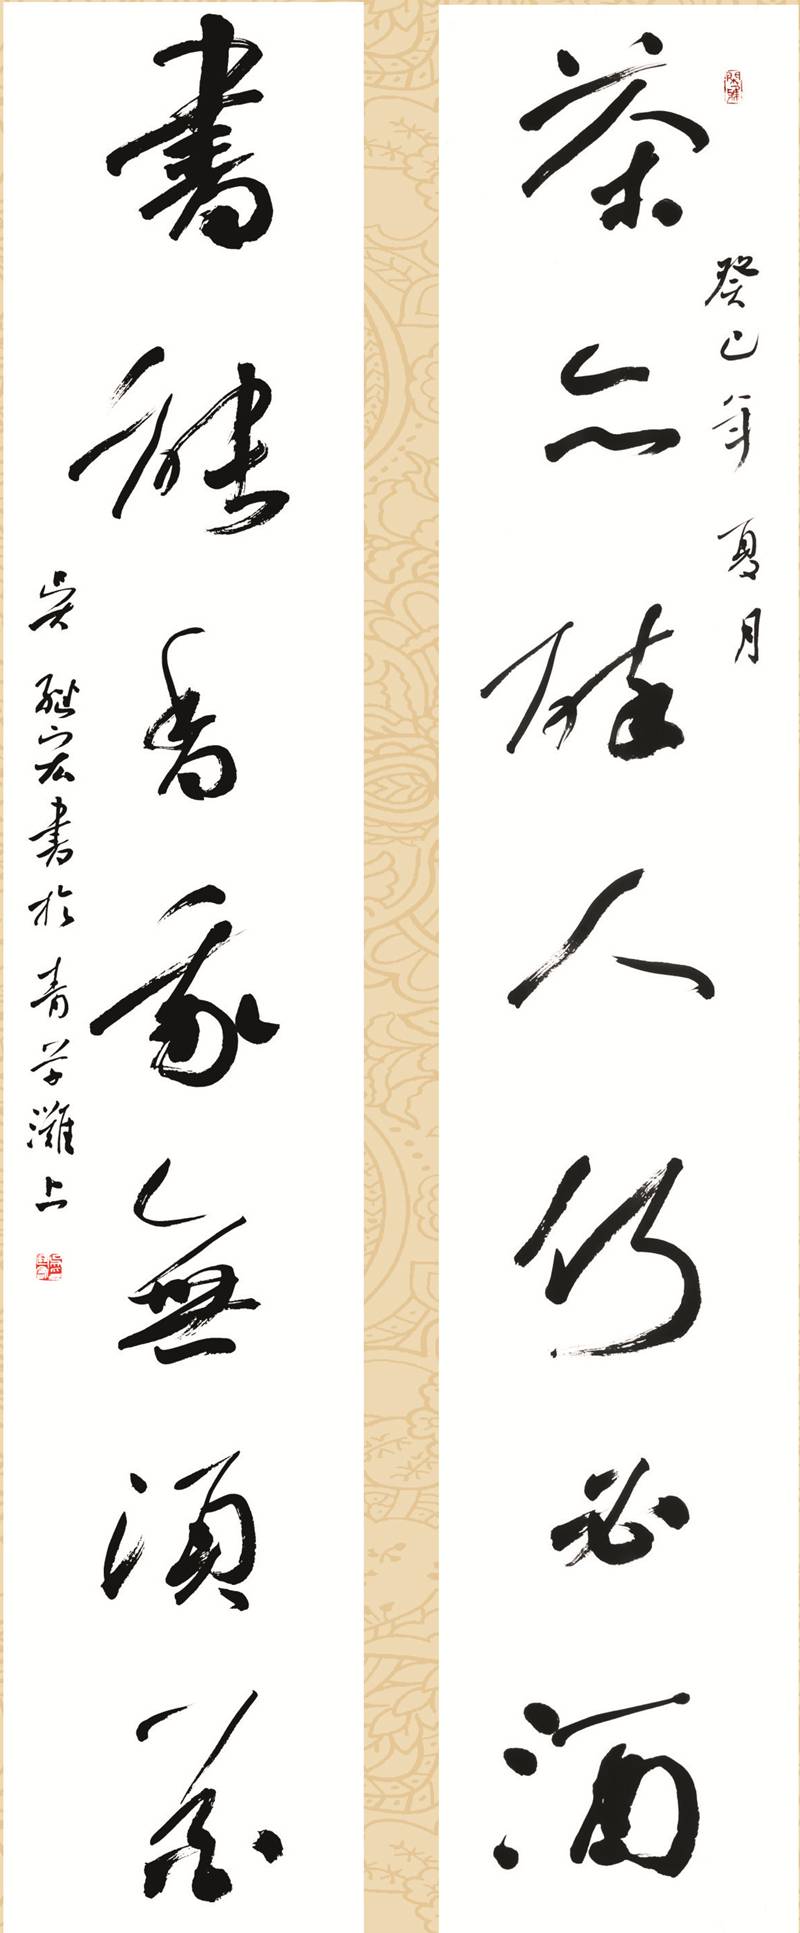 癸巳年夏月
茶亦醉人何必酒
書能香我無須花
吴继宏書於青草灘上